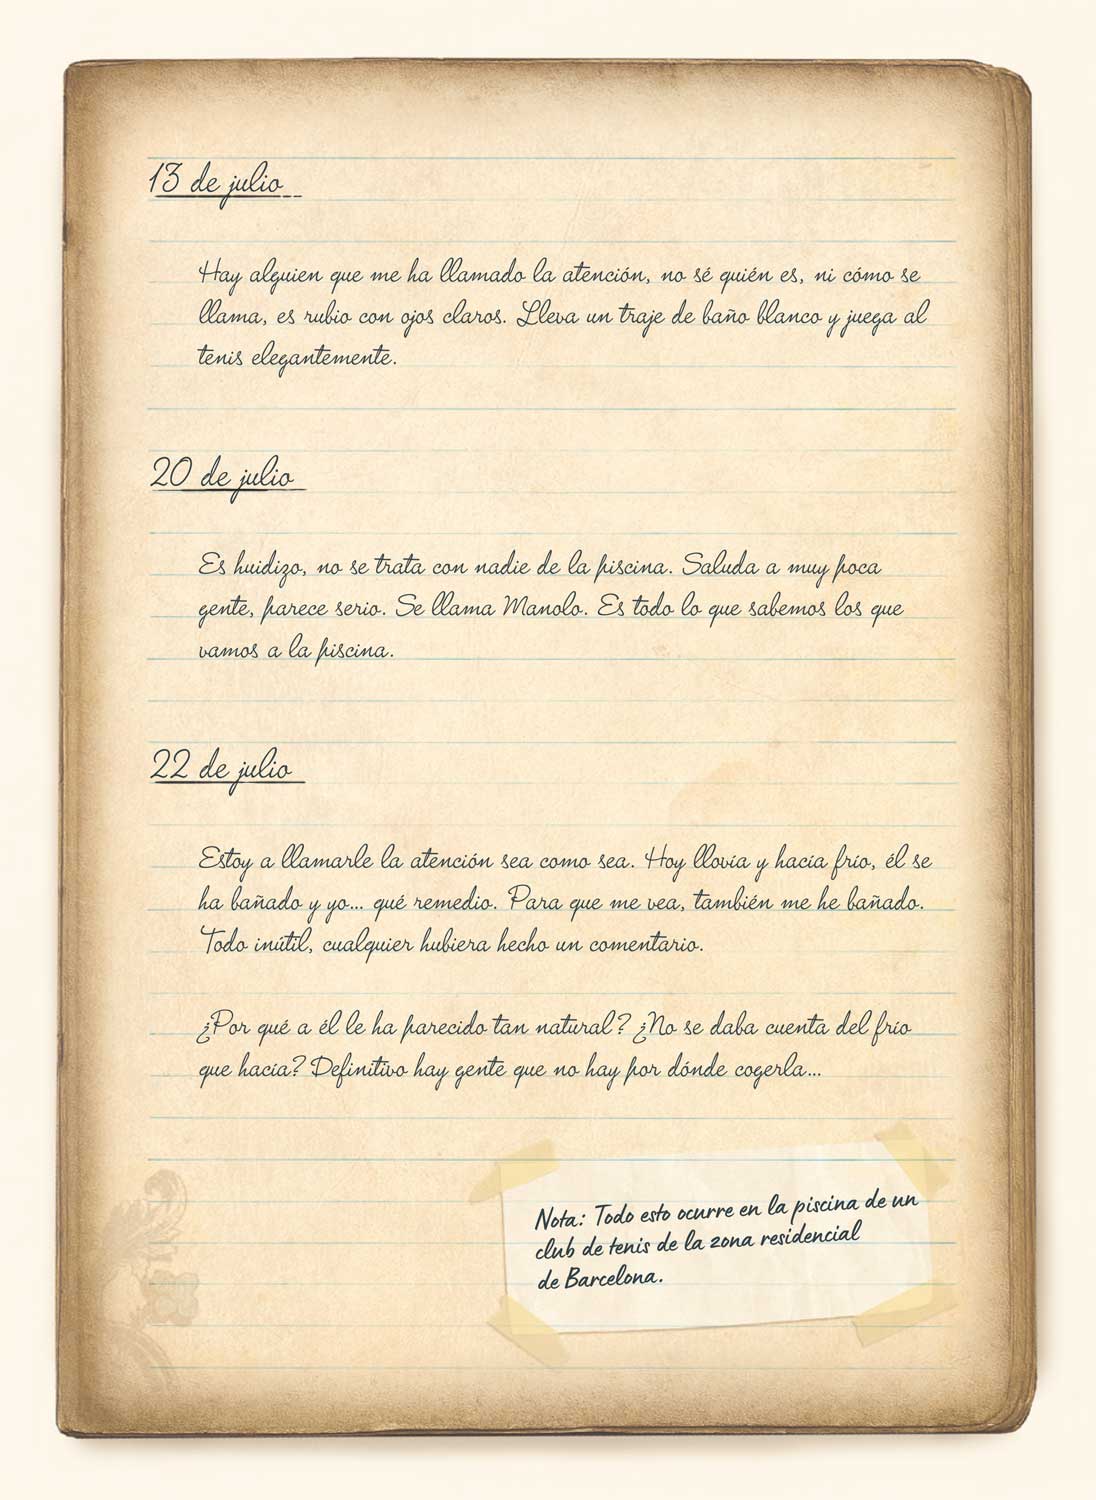 13 de julio
Hay alguien que me ha llamado la atención, no sé quién es, ni cómo se
llama, es rubio con ojos claros. Lleva un traje de baño blanco y juega al
tenis elegantemente.
20 de julio
Es huidizo, no se trata con nadie de la piscina. Saluda a muy poca
gente, parece serio. Se llama Manolo. Es todo lo que sabemos los que
vamos a la piscina.
22 de julio
Estoy a llamarle la atención sea como sea. Hoy llovía y hacía frío, él se
ha bañado y yo... qué remedio. Para que me vea, también me he bañado.
Todo inútil, cualquier hubiera hecho un comentario.
¿Por qué a él le ha parecido tan natural? ¿No se daba cuenta del frío
que hacía? Definitivo hay gente que no hay por dónde cogerla...
Nota: Todo esto ocurre en la piscina de un
club de tenis de la zona residencial
de Barcelona.